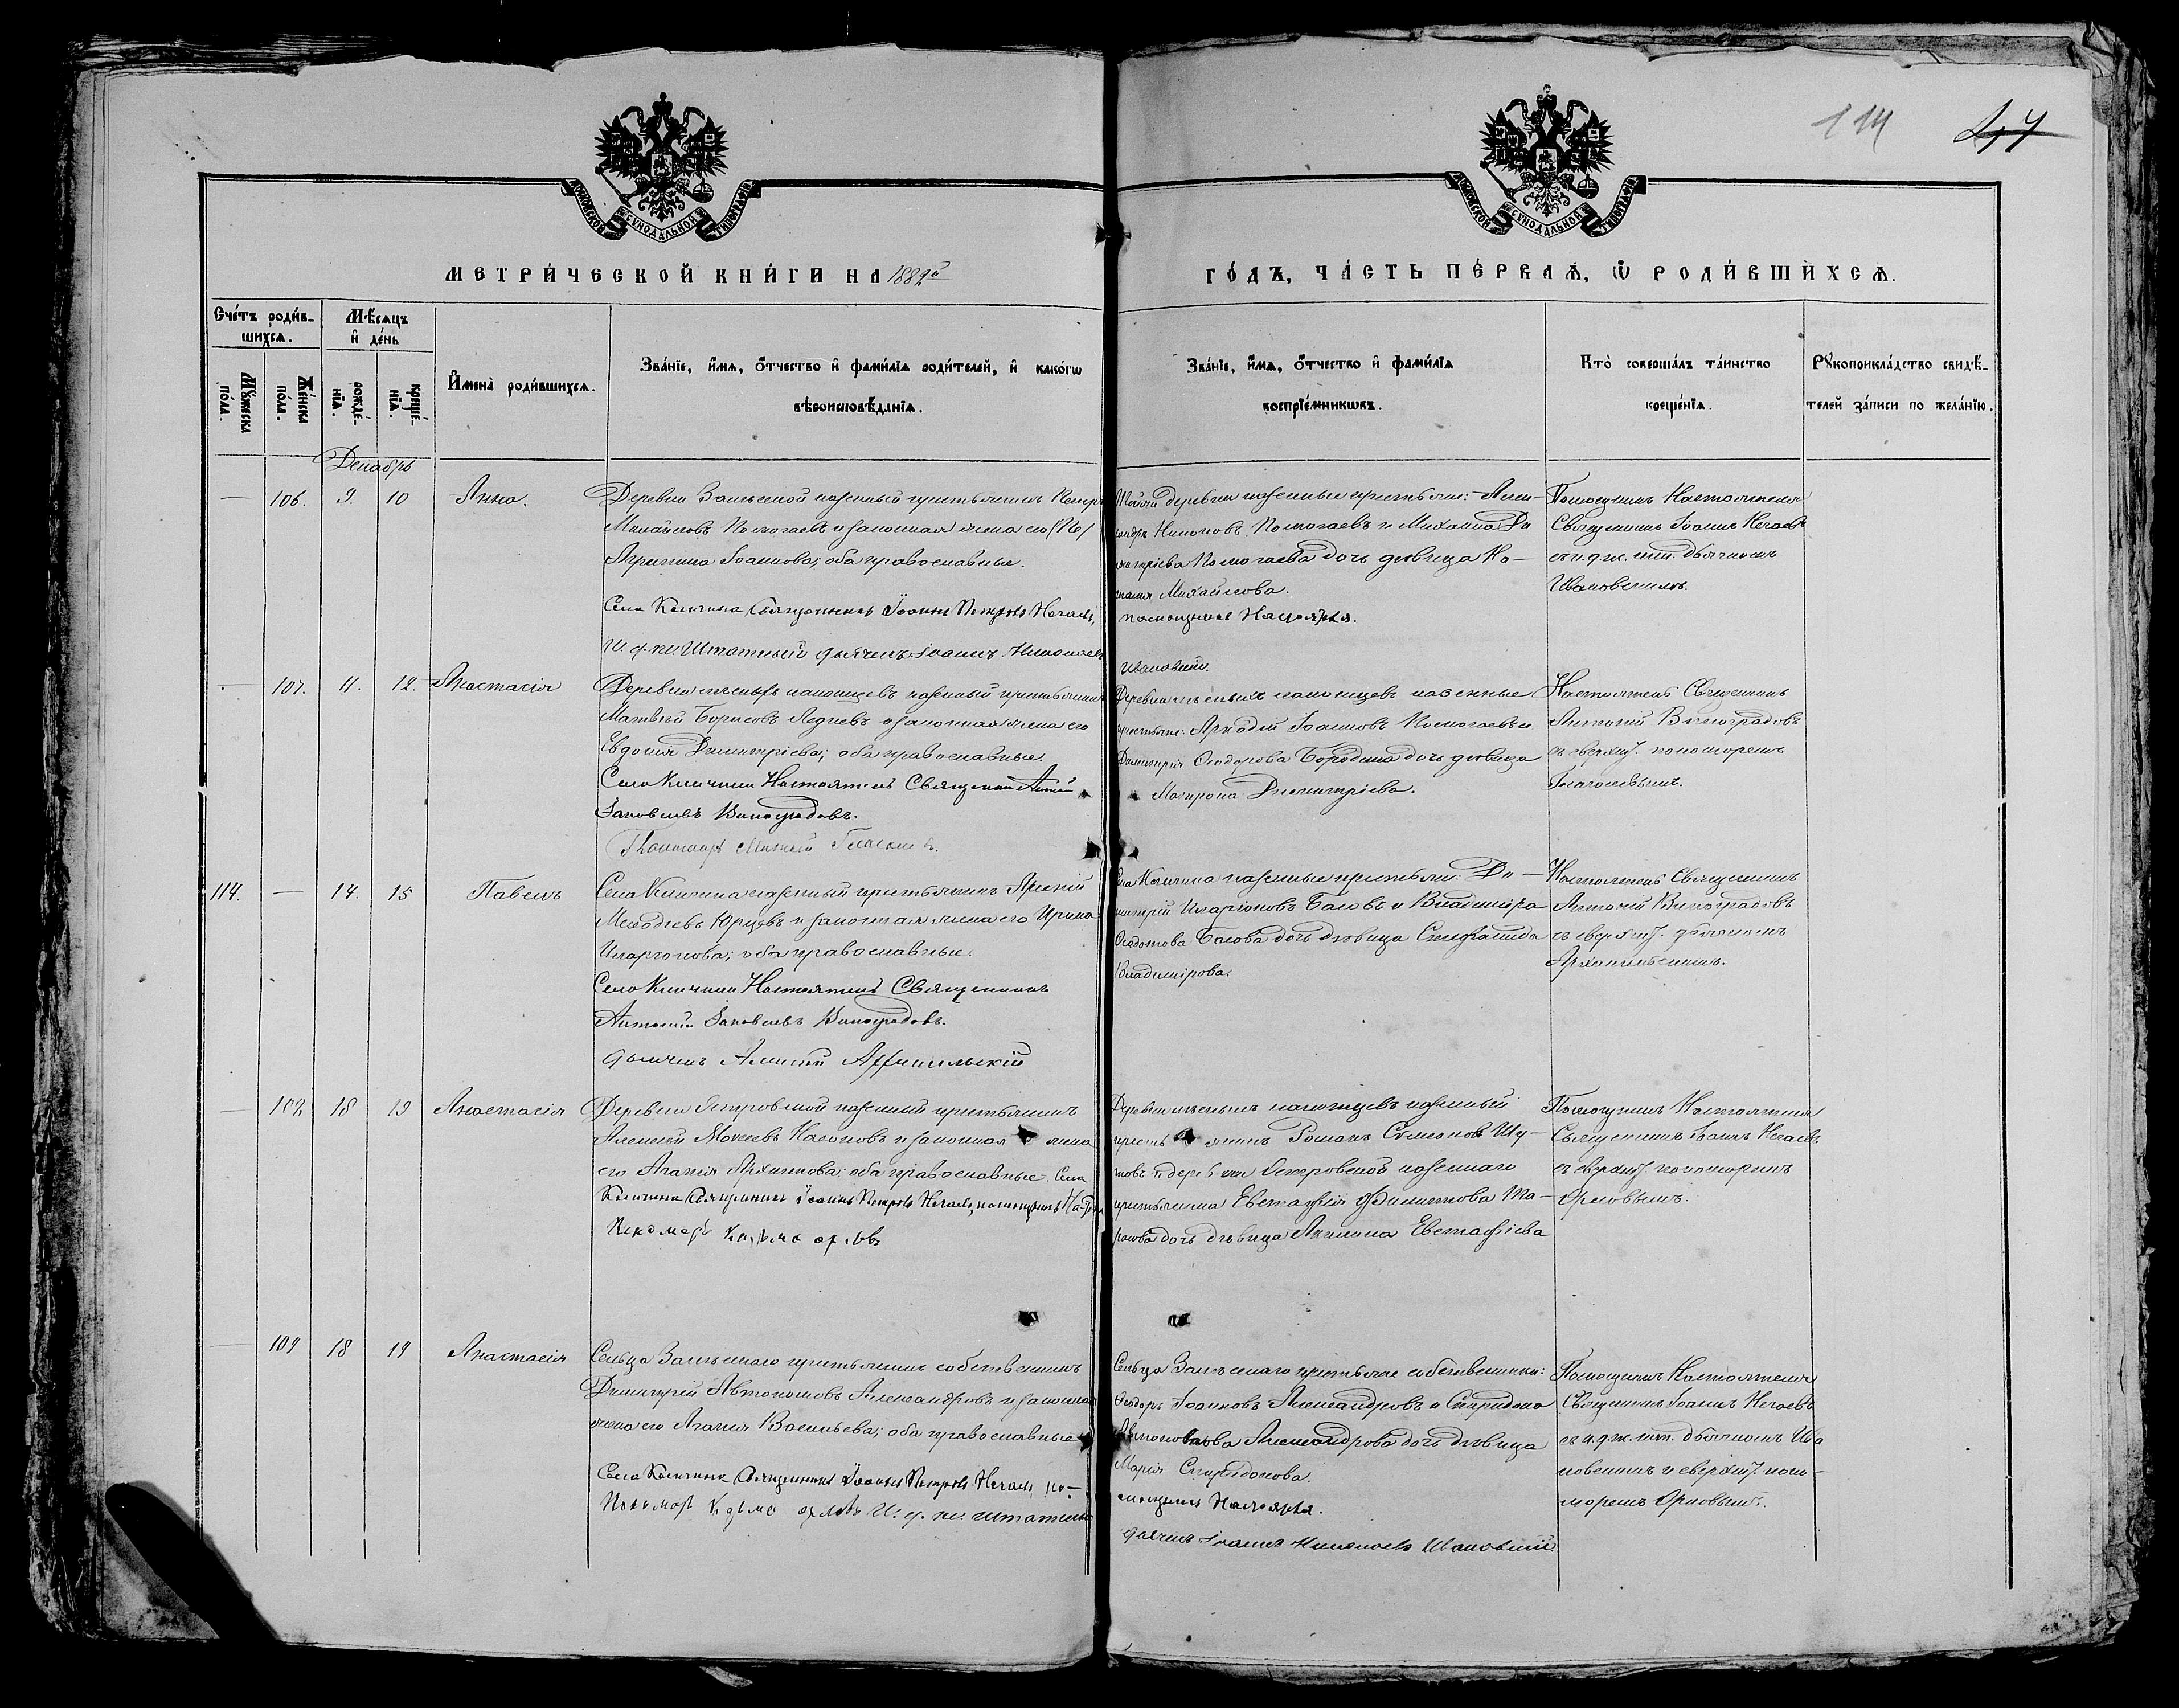 114 47
МОСКОВСКОЙ СУНОДАЛЬНОЙ ТИПОГРАФІИ
МОСКОВСКОЙ СУНОДАЛЬНОЙ ТИПОГРАФІИ
МЕТРИ́ЧЕСКОЙ КНИ́ГИ НА 1882й
ГО́ДЪ, ЧА́СТЬ ПЕ́РВАѦ, Ѿ РОДИ́ВШИХСѦ.
Сче́тъ роди́в-
шихсѧ.
Мꙋ́жеска
по́ла.
Же́нска
по́ла.
Мѣ́сѧцъ
и҆ де́нь
рожде́-
нїѧ.
креще́-
нїѧ.
И҆мена̀ роди́вшихсѧ.
Зва́нїе, и҆́мѧ, ѻ҆́тчество и҆ фами́лїѧ роди́телей, и҆ како́гѡ
вѣроисповѣ́данїѧ.
Зва́нїе, и҆́мѧ, ѻ҆́тчество и҆ фами́лїѧ
воспрїе́мникѡвъ.
Кто̀ соверша́лъ та́инство
креще́нїѧ.
Рꙋкоприкла́дство свидѣ́-
телей за́писи по жела́нїю.
Декабрь
— 106. 9. 10 Анна.
Деревни Залесной казенный крестьянинъ Петръ
Михайловъ Помогаевъ и законная жена его
Агрипина Іоаннова; оба православные.
Села Количина Священникъ Іоаннъ Петровъ Нечаевъ,
И. д. пс. Штатный дьячекъ Іоаннъ Николаевъ
Той же деревни казенные крестьяне: Алек-
сандръ Никоновъ Помогаевъ и Михаила Ди
митріева Помогаева дочь девица На-
талія Михайлова.
помощникъ Настоятеля.
Ивановскій.
Помощникъ Настоятеля
Священникъ Іоаннъ Нечаевъ
съ и. д. пс. шт. дьячкомъ
Ивановскимъ.
— 107. 11. 12. Анастасія
казенный крестьянинъ
Матвѣй Борисовъ Ледневъ и законная жена его
Евдокія Димитріева; оба православные.
Села Количина Настоятель Священникъ Антоній
Яковлевъ Виноградовъ.
Пономарь
казенные
крестьяне: Аркадій Іоанновъ Помогаевъ и
Димитрія Ѳеодорова Бородина дочь девица
Матрона Димитріева.
Настоятель Священникъ
Антоній Виноградовъ
съ сверхшт. пономаремъ
Глаголевымъ.
114. — 14. 15 Павелъ
Села Количина казенный крестьянинъ Арсеній
Меѳодіевъ Юрцевъ и законная жена его Ирина
Иларіонова; оба православные.
Села Количина Настоятель Священникъ
Антоній Яковлевъ Виноградовъ.
дьячекъ Алексѣй Архангельскій
Села Количина казенные крестьяне: Ди-
митрій Иларіоновъ Басовъ и Владиміра
Ѳедотова Басова дочь дѣвица Стефанида
Владимірова.
Настоятель Священникъ
Антоній Виноградовъ
съ сверхшт. дьячкомъ
Архангельскимъ.
— 108 18 19 Анастасія
Деревни Петровской казенный крестьянинъ
Алексѣй Моисеевъ Насоновъ и законная жена
его Агапія Архипова; оба православные. Села
Количина Священникъ Іоаннъ Петровъ Нечаевъ, помощникъ
Пономарь Кузьма Орловъ
казенный
крестьянинъ Романъ Симеоновъ Шу-
товъ и деревни Петровской казеннаго
крестьянина Евстафія Филиппова Ма-
дочь дѣвица Акилина Евстафіева
Помощникъ Настоятеля
Священникъ Іоаннъ Нечаевъ
съ сверхшт. пономаремъ
Орловымъ.
— 109 18 19 Анастасія
Сельца Залѣснаго крестьянинъ собственникъ
Димитрій Автономовъ Александровъ и законная
жена его Агапія Васильева; оба православные.
Села Количина Священникъ Іоаннъ Петровъ Нечаевъ, по-
Пономарь Кузьма Орловъ И. д. пс. штатный
Сельца Залѣснаго крестьяне собственники:
Ѳеодоръ Іоанновъ Александровъ и Спиридона
Автономова Александрова дочь дѣвица
Марія Спиридонова.
мощникъ Настоятеля.
дьячекъ Іоаннъ Николаевъ Ивановскій
Помощникъ Настоятеля
Священникъ Іоаннъ Нечаевъ
съ и. д. пс. шт. дьячкомъ Ива
новскимъ и сверхшт. поно-
маремъ Орловымъ.